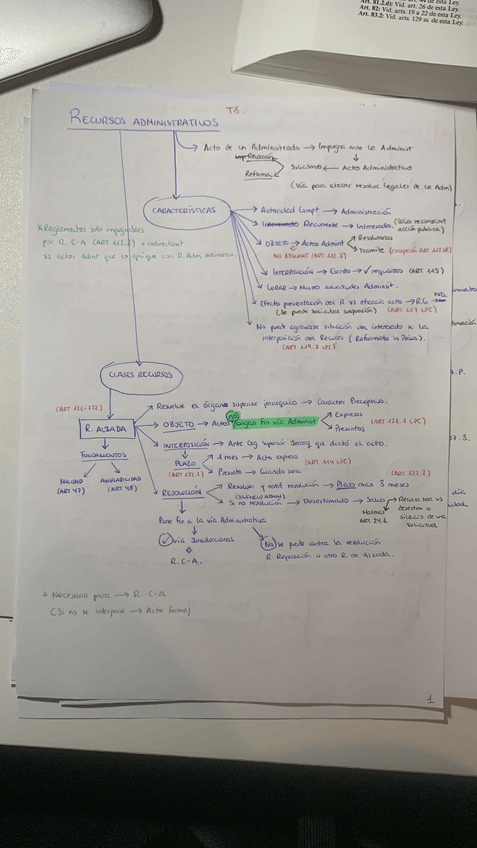 Art. 82: Vid. arts. 19 a 22 de esta Ley.
Art. 83.2: Vid. arts. 129 ss. de esta Ley.
T8.
RECURSOS ADMINISTRATIVOS
Acto de un Administrado → Impugna ante la Administ
Solicitando ← Acto Administrativo
Reforma
(Vía para atacar resoluc legales de la Adm)
CARACTERÍSTICAS
Autoridad Compt → Administración
Recurrente → Interesado
OBJETO → Actos Administ
Resolutorios
Tramite
NO REGLAMT (ART 112.3)
INTERPOSICIÓN → Escrito → ✓ requisitos (ART 115)
LUGAR → Mismo solicitudes Administ.
Efecto presentación del R vs eficacia acto → R.G →
(Se puede solicitar suspensión) (ART 117 LPC)
No puede agravarse situación del interesado x la
interposición del Recurso (Reformatio in Peius).
(ART 119.3 LPC)
* Reglamentos solo impugnables
por R. C-A (ART 112.3) o indirectamt
CLASES RECURSOS
(ART 121-122)
R. ALZADA
Resuelve el órgano superior jerárquico → Carácter Preceptivo.
OBJETO → Actos no pongan fin vía Administ
Expresos
Presuntos
(ART 121.1 LPC)
FUNDAMENTOS
NULIDAD
(ART 47)
ANULABILIDAD
(ART 48)
INTERPOSICIÓN → Ante Org Superior Jerarq que dictó el acto.
PLAZO
1 mes → Acto expreso
(ART 121.1)
Presunto → Cuando sea
RESOLUCIÓN
Resolver y notif resolución → PLAZO max 3 meses
(ART 122.2)
(SILENCIO ADMIN)
Si no resolución → Desestimado → Salvo
ART 24.1
Pone fin a la vía Administrativa
✓ vía Jurisdiccional
R. C-A.
No se puede contra la resolución
R. Reposición u otro R. de Alzada.
* Necesario para → R. C-A
(Si no se interpone → Acto firme)
1